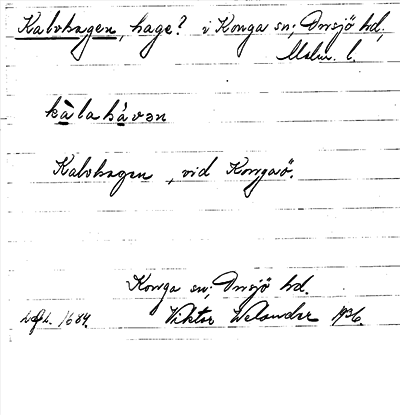 Kalvhagen, hage? i Konga sn; Onsjö hd,
Malm. l.
kàlahávən
Kalvhagen, vid Kongaö.
Konga sn; Onsjö hd.
1684. Viktor Welander 1936.